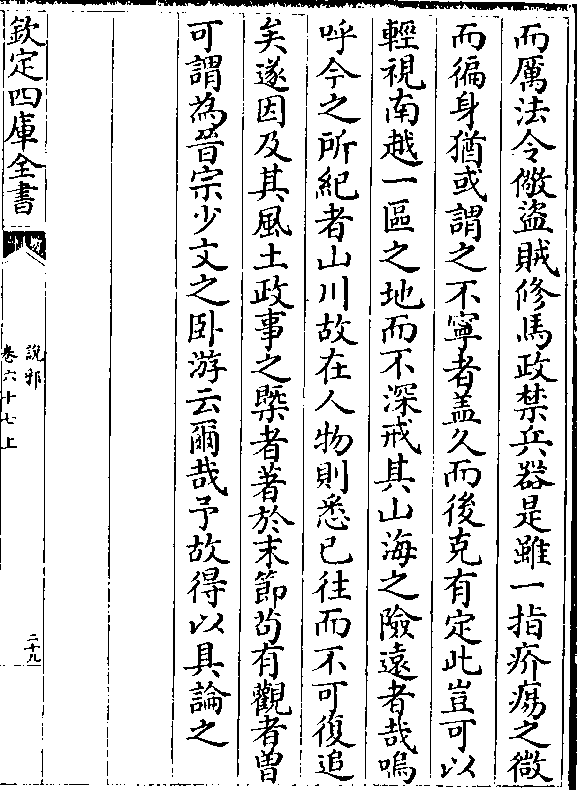 而厲法令儆盜賊修馬政禁兵器是雖一指疥瘍之微
而徧身猶或謂之不寧者盖久而後克有定此豈可以
輕視南越一區之地而不深戒其山海之險遠者哉嗚
呼今之所紀者山川故在人物則悉已往而不可復追
矣遂因及其風土政事之槩者著於末節茍有觀者曽
可謂為晉宗少文之卧游云爾哉予故得以具論之
欽定四庫全書
說郛
卷六十七上
二十九